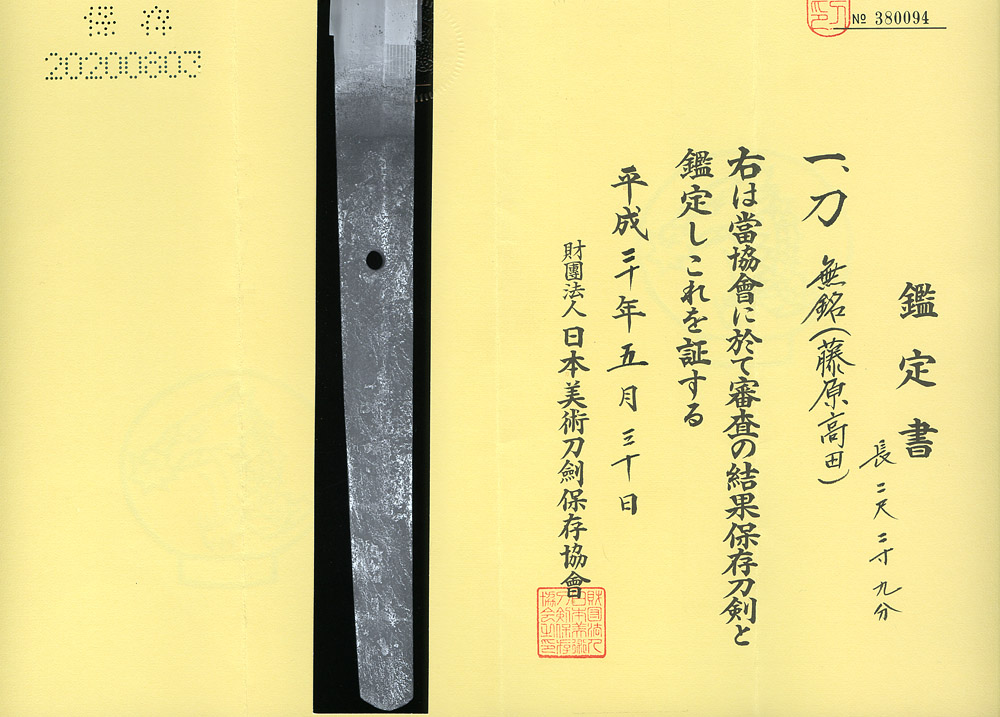 № 380094
鑑定書
長二尺二寸九分
一、刀 無銘(藤原高田)
右は當協會に於て審査の結果保存刀剣と
鑑定しこれを証する
平成二十年五月三十日
財團法人日本美術刀劍保存協會
財団法人
日本美術
刀剣保存
協会之印
保存
20200803